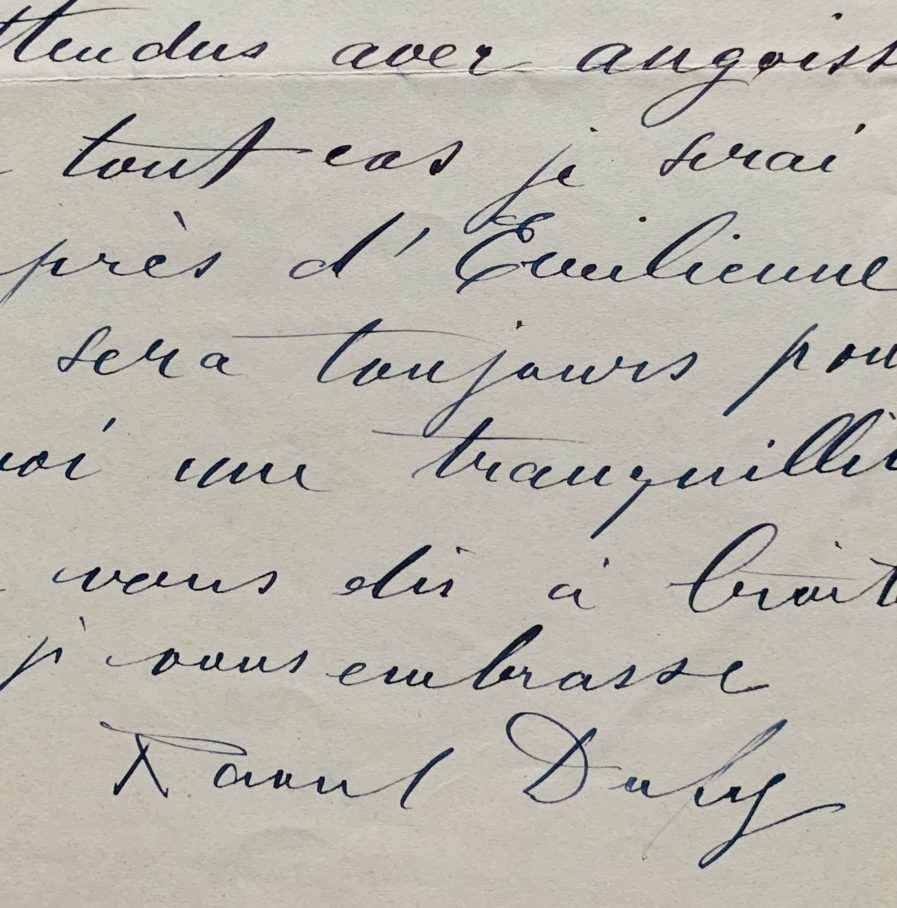 ttendus avec angoiss
tout cas je serai
près d'Emilienne
sera toujours pou
oi une tranquillit
vous dis à bient
je vous embrasse
Raoul Dufy